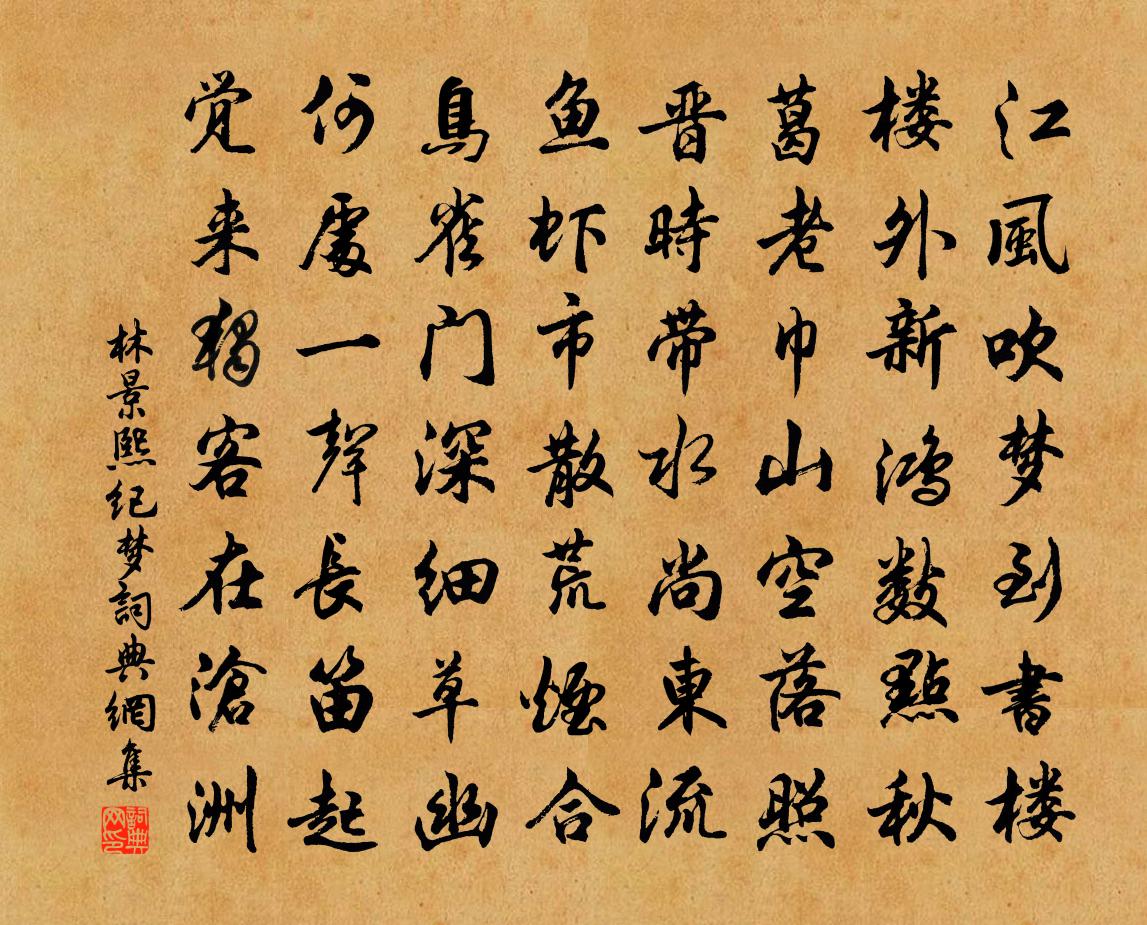 江風吹梦到書楼
楼外新鸿数點秋
葛老巾山空落照
晋時带水尚東流
鱼虾市散荒煙合
鳥雀门深细草幽
何處一聲長笛起
觉来猶客在滄洲
林景熙纪梦詞典網集
詞典网印